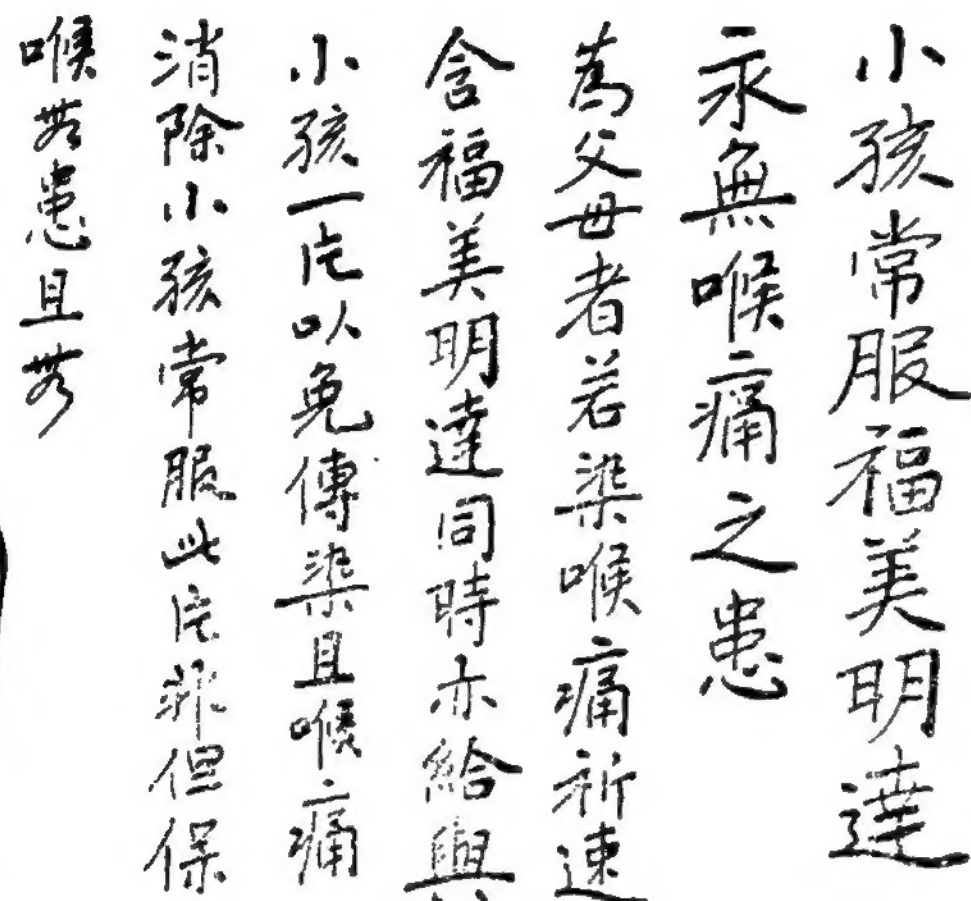 小孩常服福美明達
永無喉痛之患
為父母者若染喉痛祈速
含福美明達同時亦給與
小孩一片以免傳染且喉痛
消除小孩常服此片非但保
喉無患且無